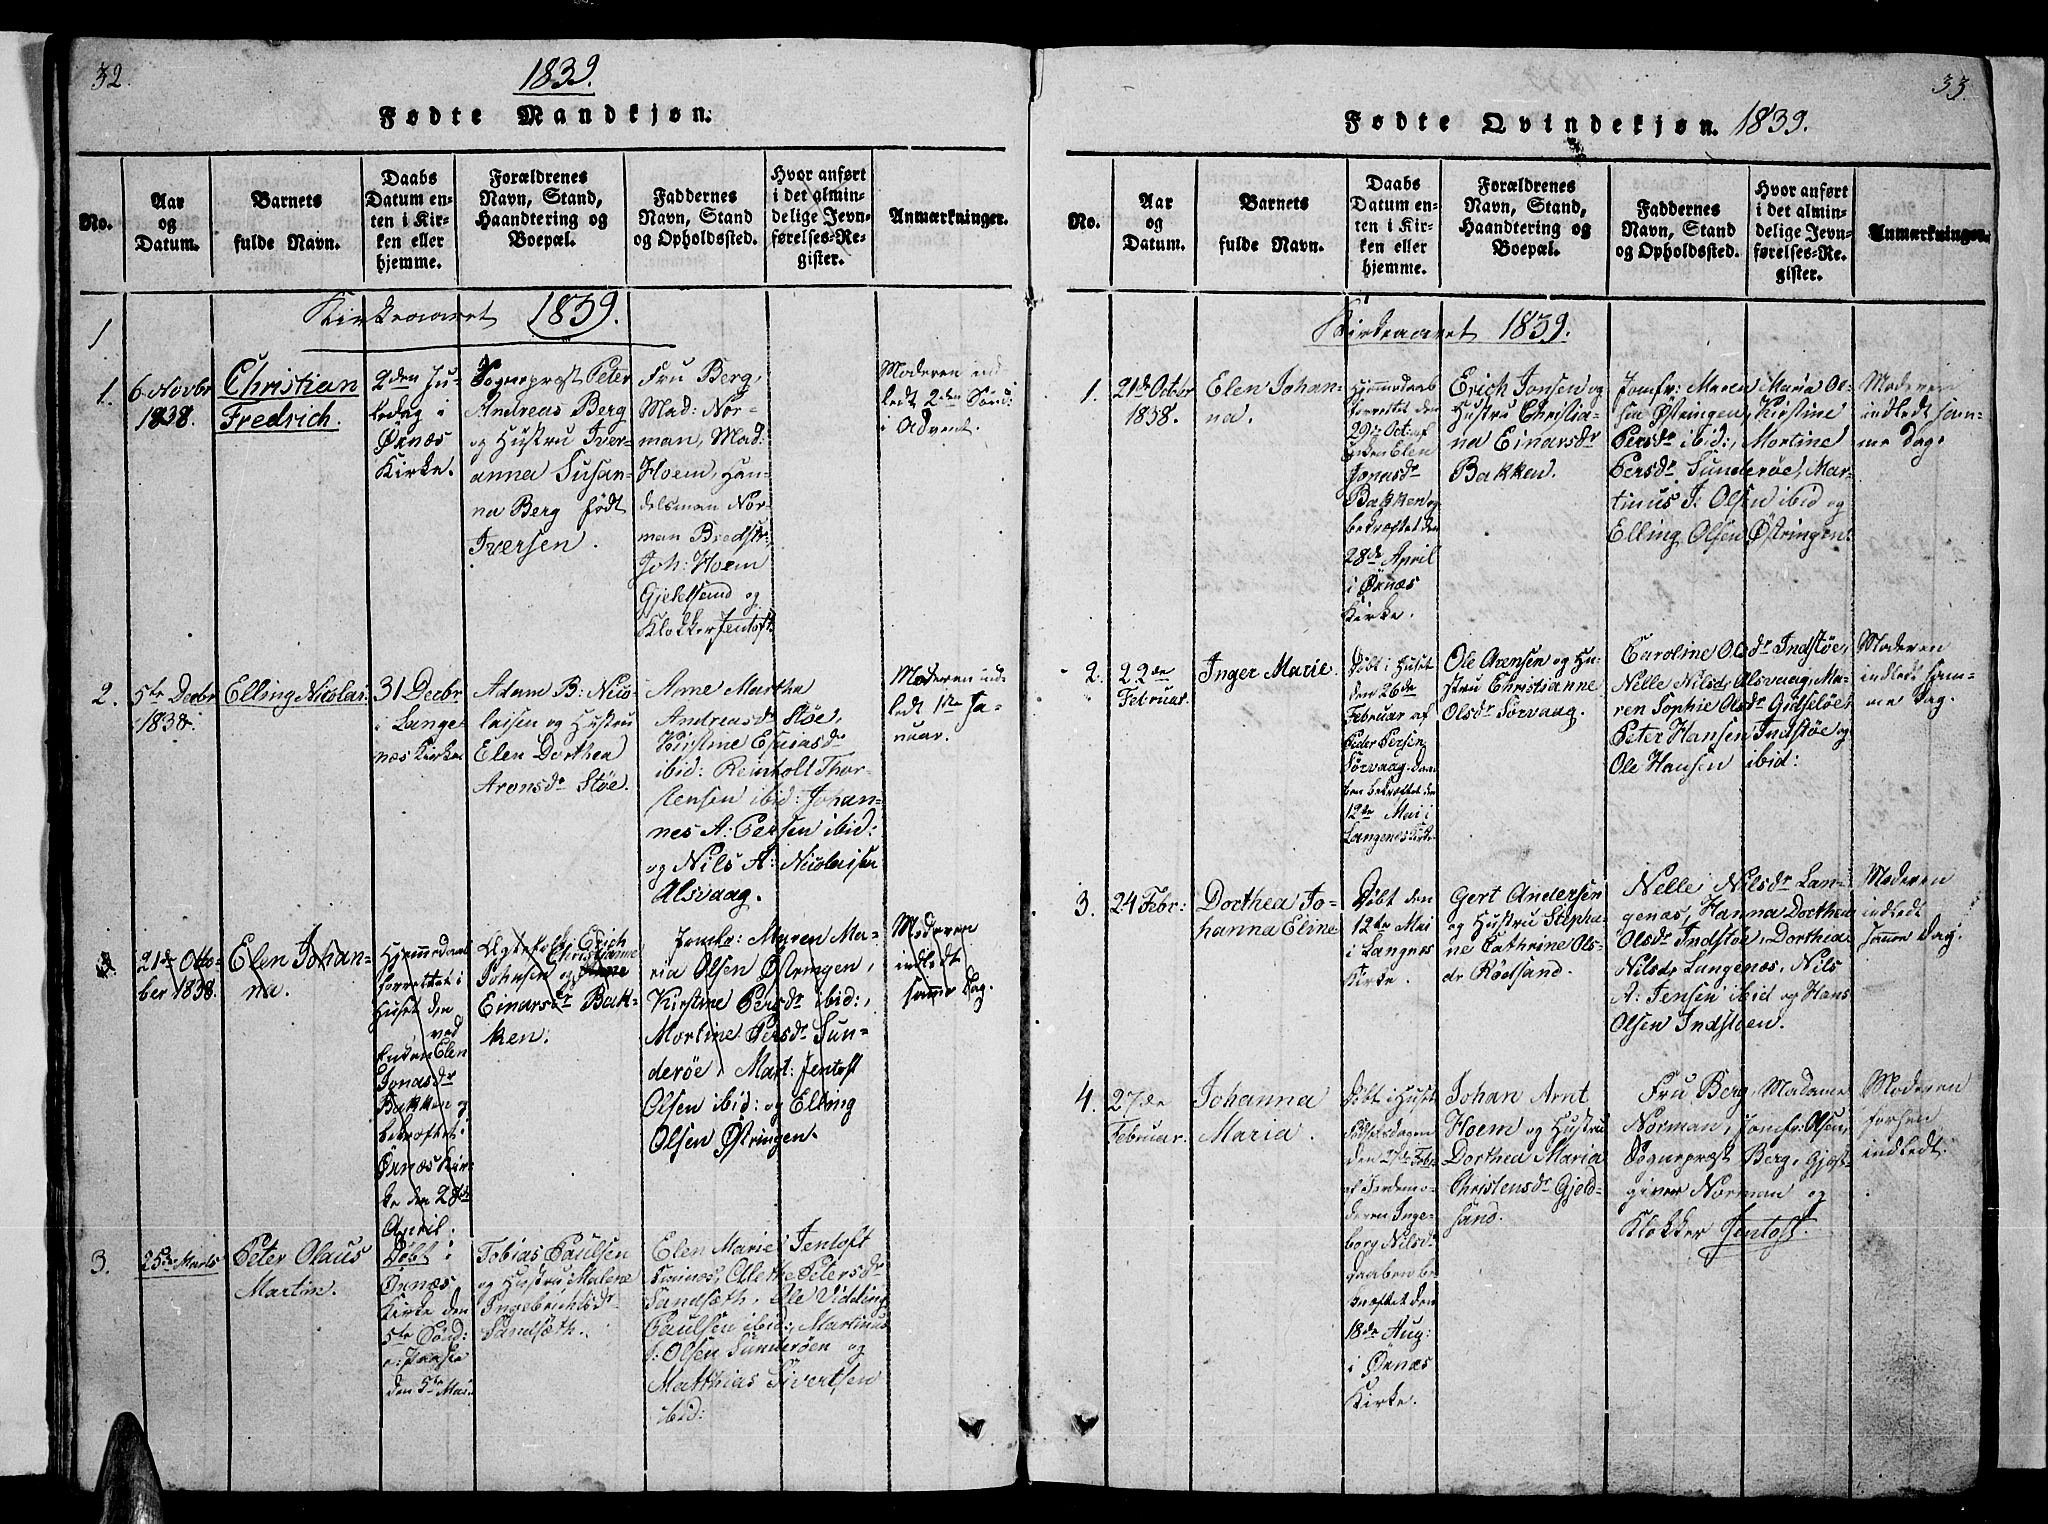 32.
1839.
Fødte Mandkjøn.
No.
Aar
og
Datum.
Barnets
fulde Navn.
Daabs
Datum en-
ten i Kir-
ken eller
hjemme.
Forældrenes
Navn, Stand,
Haandtering og
Boepæl.
Faddernes
Navn, Stand
og Opholdssted.
Hvor anført
i det almin-
delige Jevn-
førelses-Re-
gister.
Anmærkninger.
Kirkeaaret 1839.
1.
6 Novbr
1838.
Christian
Fredrich.
2den Ju-
ledag i
Ørnæs
Kirke.
Sognepræst Peter
Andreas Berg
og Hustru Iver-
anna Susan-
na Berg født
Iversen.
Fru Berg,
Mad: Nor-
man, Mad:
Hoem, Han-
delsman Nor-
man Bredstr:
Joh: Hoem
Gjeldsand og
Klokker Jentoft.
Moderen ind
ledt 2den Sønd:
i Advent.
2.
5te Decbr
1838.
Elling Nicolai.
31 Decbr
i Lange
næs Kirke
Adam B: Nico-
laisen og Hustru
Elen Dorthea
Aronsdr Støe.
Anne Martha
Andreasdr Støe,
Kirstine Esaiasdr
ibid: Reinholt Thor-
stensen ibid: Johan-
nes A: Persen ibid:
og Nils A: Nicolaisen
Alsvaag.
Moderen ind
ledt 1te Ja-
nuar.
21de Octo-
ber 1838.
Elen Johan-
na.
Hjemmedaab
forrettet i
Huset den
ved
Enken Elen
Jonasdr
Bakken og
bekræftet i
Ørnæs Kir-
ke den 28de
April.
Ægtefolk Erich
Johnsen og Christianne
Einarsdr Bak-
ken:
Jomfr: Maren Ma-
ria Olsen Østringen,
Kirstine Persdr ibid:,
Mortine Persdr Sun-
derøe, Mart: Jentoft
Olsen ibid: og Elling
Olsen Østringen.
Moderen
indledt
samme Dag.
3.
25de Marts
Peter Olaus
Martin.
Døbt i
Ørnæs
Kirke den
5te Sønd:
e: Paaske
den 5te Mai.
Tobias Paulsen
og Hustru Malene
Ingebrichtsdr
Sandsæth.
Elen Marie Jentoft
Olethe Petersdr
Sandsæth, Ole Vidding
Paulsen ibid:, Martinus
J: Olsen Sunderøen og
Matthias Sivertsen
ibid:
33.
Fødte Qvindekjøn. 1839.
No.
Aar
og
Datum.
Barnets
fulde Navn.
Daabs
Datum en-
ten i Kir-
ken eller
hjemme.
Forældrenes
Navn, Stand,
Haandtering og
Boepæl.
Faddernes
Navn, Stand
og Opholdssted.
Hvor anført
i det almin-
delige Jevn-
førelses-Re-
gister.
Anmærkninger.
Kirkeaaret 1839.
1.
21de Octbr
1838.
Elen Johan-
na.
Hjemmedaab
forrettet den
29de Oct: af
Enken Elen
Jonasdr
Bakken og
bekræftet den
28de April
i Ørnæs
Kirke.
Erich Jonsen og
Hustru Christia-
na Einarsdr
Bakken.
Jomfr: Maren Maria Ol-
sen Østringen, Kirstine
Persdr ibid:, Mortine
Persdr Sunderøe, Mar-
tinus J: Olsen ibid og
Elling Olsen Østringen.
Moderen
indledt sam-
me Dag.
2.
22de
Februar.
Inger Marie.
Døbt i Huset
den 26de
Februar af
Peder Persen
Sørvaag. Daa-
ben bekræftet den
12te Mai i
Langenes Kirke
Ole Arensen og Hu-
stru Christianne
Olsdr Sørvaag.
Caroline Olsdr Indstøe,
Nelle Nilsdr Alsvaag, Ma-
ren Sophie Olsdr Gidseløe,
Peter Hansen Indstøe og
Ole Hansen ibid:
Moderen
indledt sam-
me Dag.
3.
24 Febr:
Dorthea Jo-
hanna Eline
Døbt den
12te Mai
i Langnes
Kirke.
Gert Andersen
og Hustru Stepha-
ne Cathrine Ols-
dr Rødsand.
Nelle Nilsdr Lan-
genæs, Hanna Dorthea
Olsdr Indstøe, Dorthea
Nilsdr Langenæs, Nils
A: Jensen ibid og Hans
Olsen Indstøen.
Moderen
indledt
samme Dag.
4.
27de
Februar.
Johanna
Maria.
Døbt i Huset
Fødselsdagen
den 27de Febr
af Jordemo-
deren Inge-
borg Nilsdr
Daaben be-
kræftet den
18de Aug:
i Ørnæs
Kirke.
Johan Arnt
Hoem og Hustru
Dorthea Maria
Christensdr Gjeld-
sand.
Fru Berg, Madame
Norman, Jomfr: Olsen,
Sognepræst Berg, Gjæst-
giver Norman og
Klokker Jentoft.
Moderen
forhen
indledt.